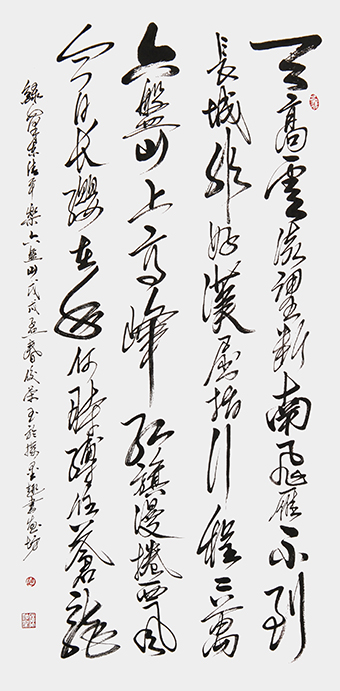 天高雲淡望斷南飛雁不到
長城非好漢屈指行程二萬
六盤山上高峰紅旗漫捲西風
今日長纓在手何時縛住蒼龍
錄清平樂六盤山春於書畫坊